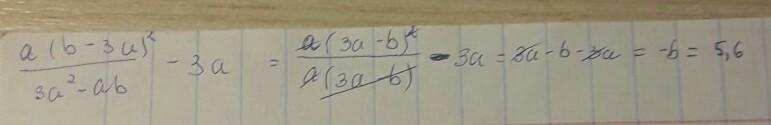 a(b-3a)²/3a²-ab - 3a = a(3a-b)²/a(3a-b) - 3a = 3a-b-3a = -b = 5,6